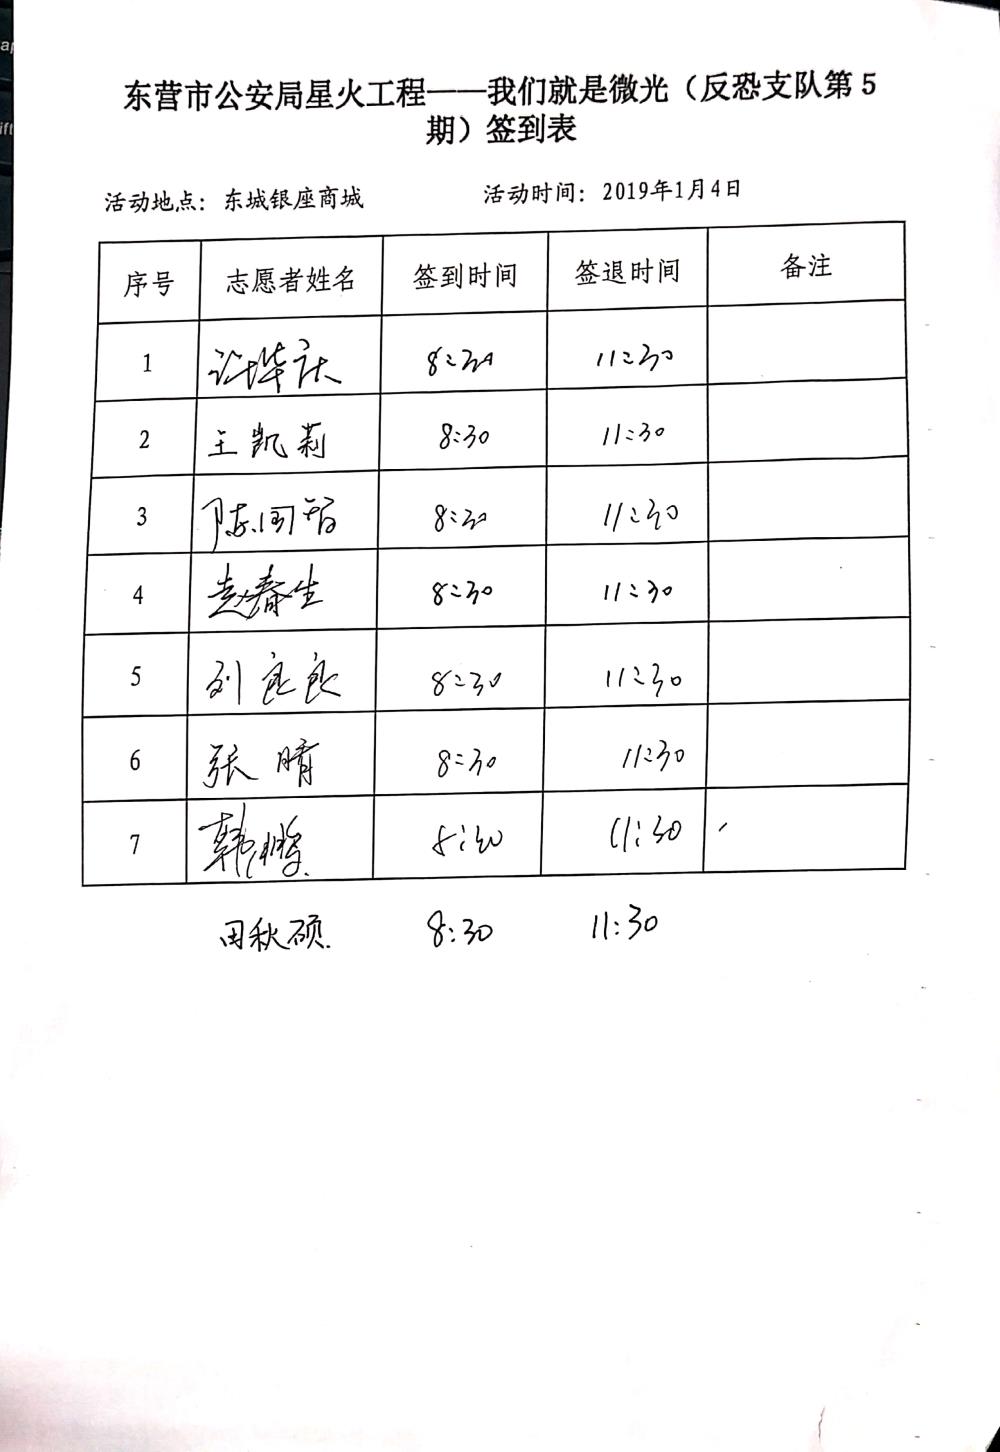 东营市公安局星火工程——我们就是微光（反恐支队第5
期）签到表
活动地点：东城银座商城 活动时间：2019年1月4日
序号 志愿者姓名 签到时间 签退时间 备注
1 许 8:30 11:30
2 王凯莉 8:30 11:30
3 陈国 8:30 11:30
4 赵春生 8:30 11:30
5 刘良良 8:30 11:30
6 张晴 8:30 11:30
7 韩鹏 8:30 11:30
田秋硕 8:30 11:30